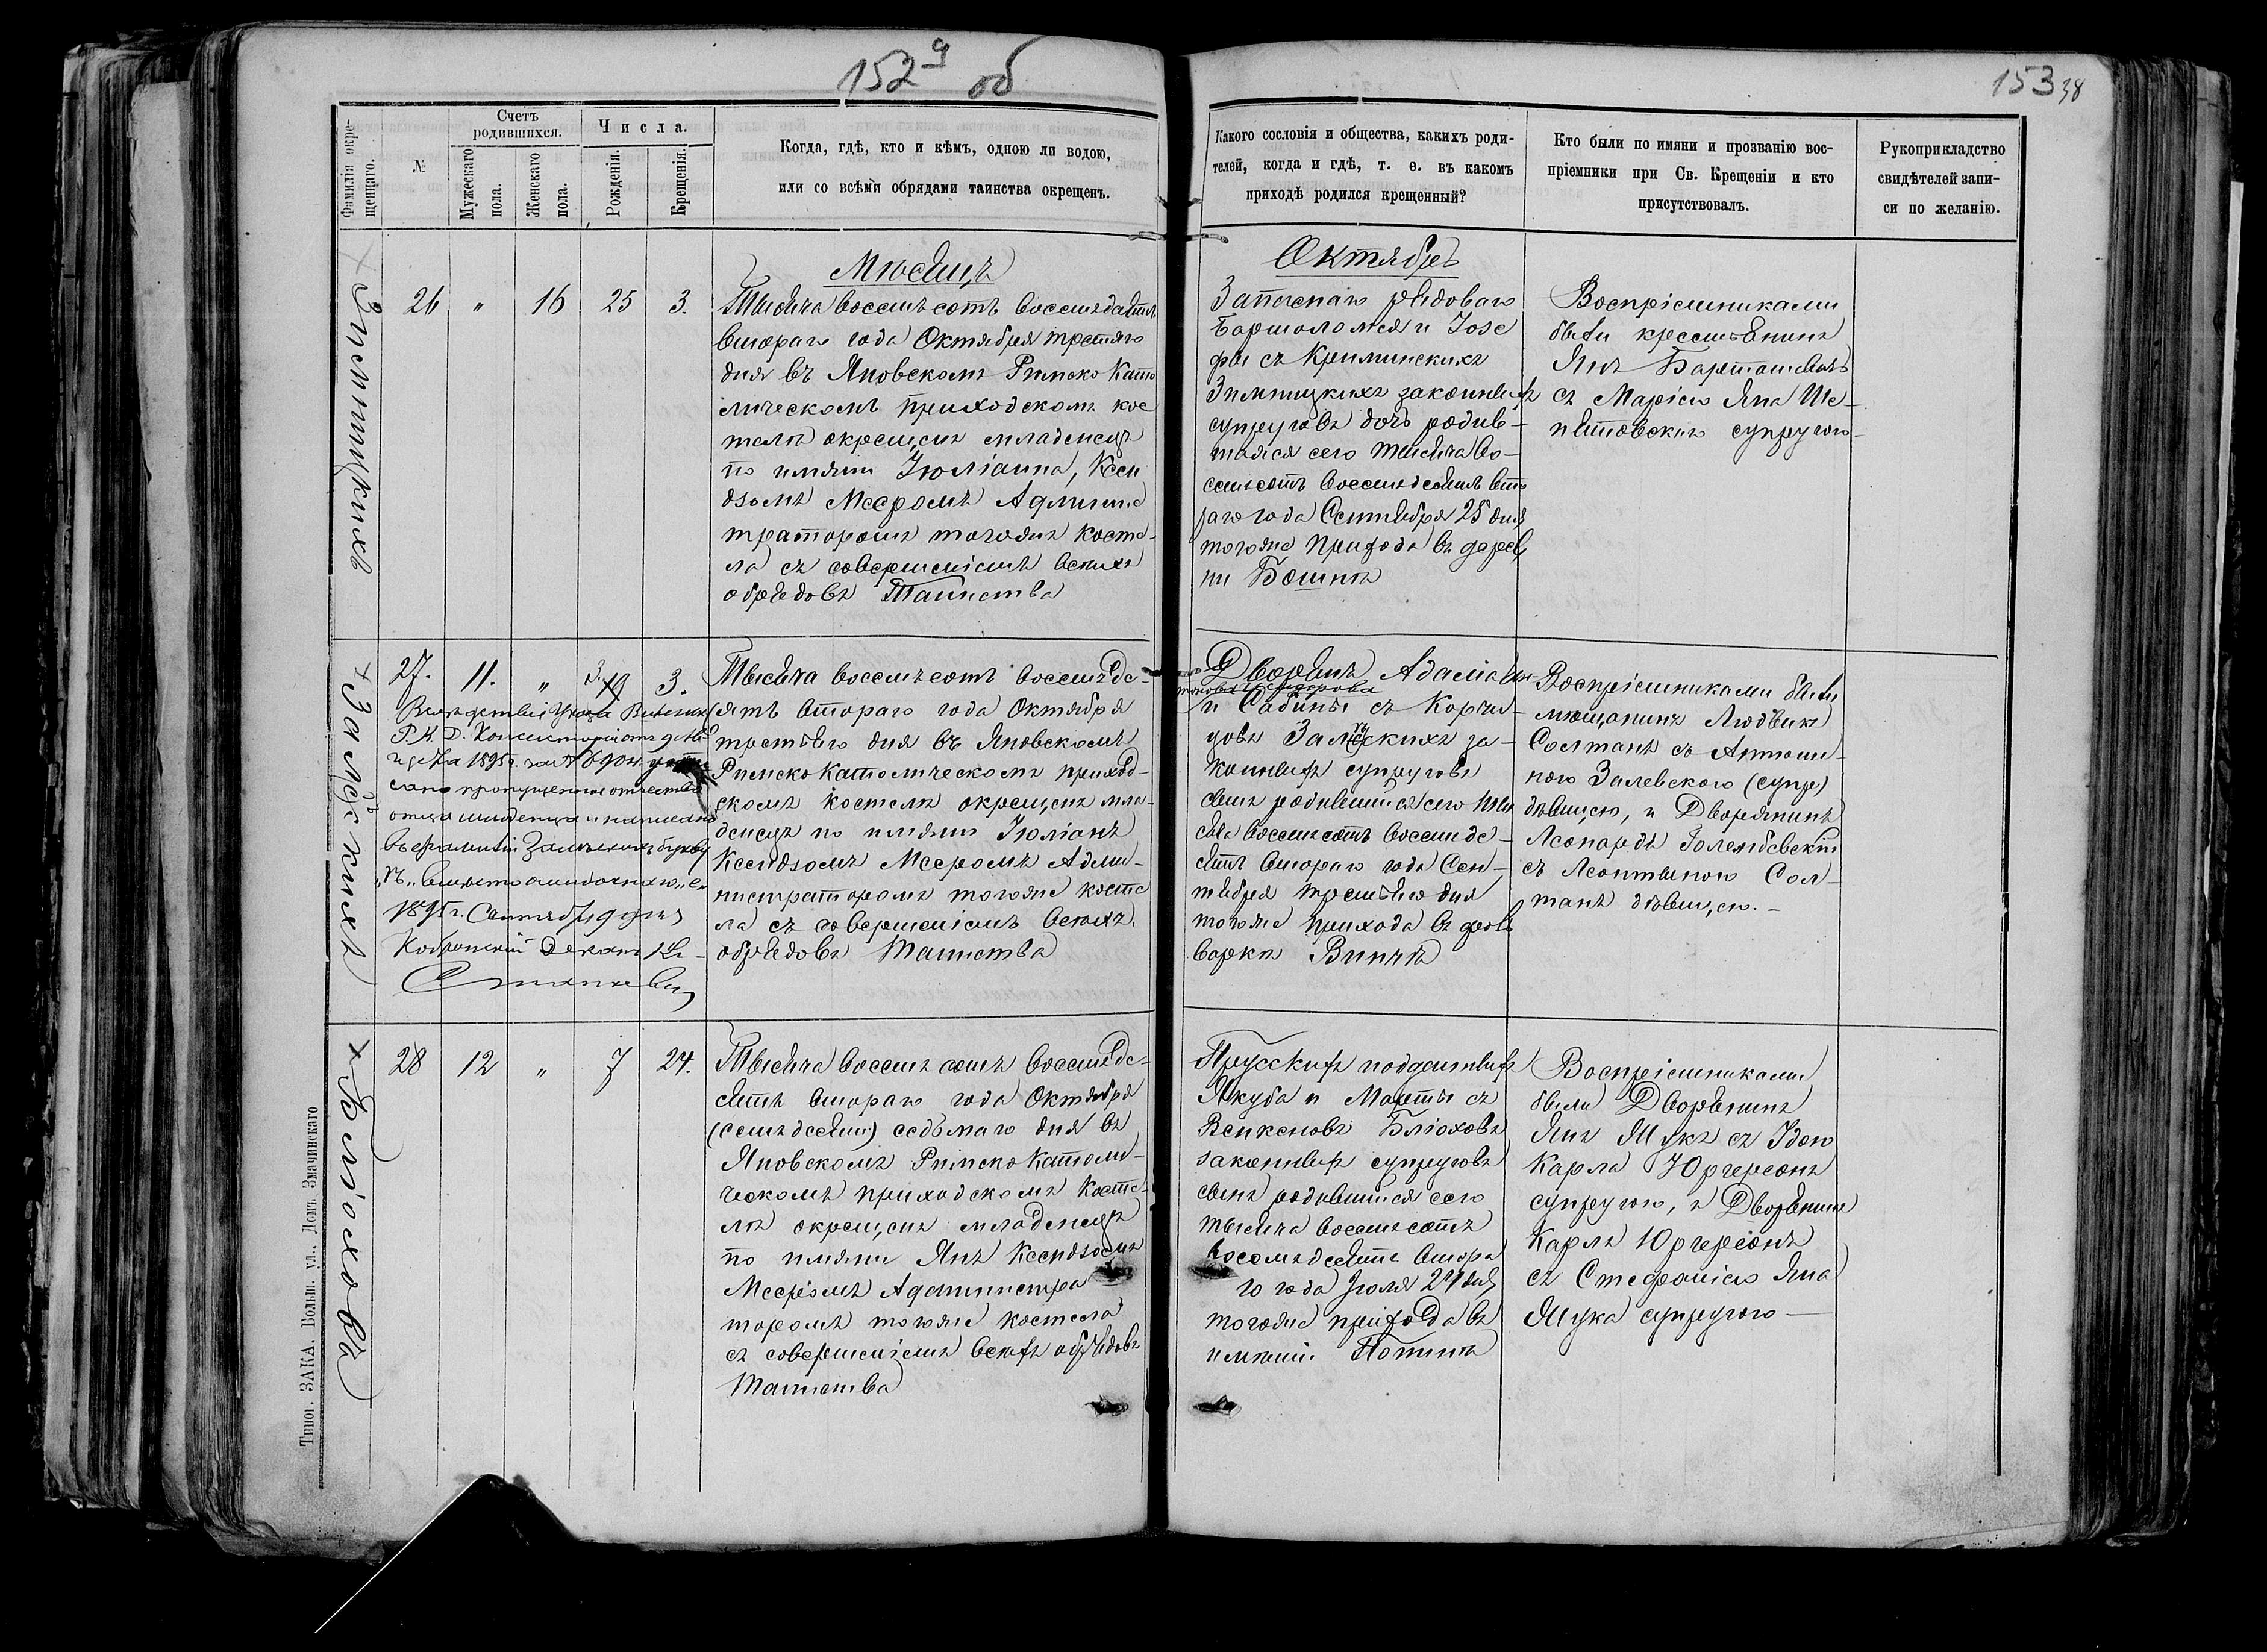 152 об
Фамилія окре-
щенаго.
№
Счетъ
родившихся.
Мужескаго
пола.
Женскаго
пола.
Числа.
Рожденія.
Крещенія.
Когда, гдѣ, кто и кѣмъ, одною ли водою,
или со всѣми обрядами таинства окрещенъ.
Зчемпицкихъ
26 " 16 25 3.
Мѣсяцъ
Тысяча восемьсотъ восемьдасятъ
втораго года Октября третьяго
дня въ Яновскомъ Римско Като
лическомъ приходскомъ кос
телѣ окрещенъ младенецъ
по имяни Юліанна, Ксен
дзомъ Месромъ Админис
траторомъ тогоже косте-
ла съ совершеніемъ всѣхъ
обрядовъ Таинства
Залѣскихъ
27. 11. " 3. 19 3.
Вслѣдствіи Указа Виленск
Р. К. Д. Консисторіи отъ
1895 г. за №
сано пропущенное отчество
отца младенца и написано
въ фамиліи Залѣскихъ букву
„ѣ„ вмѣсто ошибочнаго „е„
1895 г. Сентября 9 дня
Кобринскій Деканъ Кс-
Тысяча восемьсотъ восемьде-
сятъ втораго года Октября
третьяго дня въ Яновскомъ
Римско Католическомъ приход-
скомъ костелѣ окрещенъ мла-
денецъ по имяни Юліанъ
Ксендзомъ Месромъ Адми-
нистраторомъ тогоже косте
ла съ совершеніемъ всѣхъ
обрядовъ Таинства
Бліоховъ
28 12 " 7 24.
Тысяча восемьсотъ восемьде-
сятъ втораго года Октября
(семьдесят) седьмаго дня въ
Яновскомъ Римско Католи-
ческомъ приходскомъ Косте-
лѣ окрещенъ младенецъ
по имяни Янъ Ксендзомъ
Месромъ Администра
торомъ тогоже костела
съ совершеніемъ всѣхъ обрядовъ
Таинства
Типог. ЗАКА. Больш. ул., Домъ Змачинскаго
153 38
Какого сословія и общества, какихъ роди-
телей, когда и гдѣ, т. е. въ какомъ
приходѣ родился крещенный?
Кто были по имяни и прозванію вос-
пріемники при Св. Крещеніи и кто
присутствовалъ.
Рукоприкладство
свидѣтелей запи-
си по желанію.
Октябрь
Запаснаго рядоваго
Бартоломея и Іозе
фы съ Криминскихъ
законныхъ
супруговъ дочь родив-
шаяся сего тысяча во-
семьсотъ восемьдесятъ вто
раго года Сентября 25 дня
тогоже прихода въ дерев
ни
Воспріемниками
были крестьянинъ
Янъ Барташевичъ
съ Маріею Яна Ше-
петовскаго супругою-
Дворянъ Адама
и Сабины съ Корчи-
цовъ Залѣскихъ за-
конныхъ супруговъ
сынъ родившійся сего тыс
сяча восемьсотъ восемьде-
сятъ втораго года Сен-
тября третьяго дня
тогоже прихода въ фоль
варкѣ
Воспріемниками были
мѣщанинъ Людвикъ
Солтанъ съ Антони-
ною Залевскою (супр)
дѣвицею, и Дворянинъ
Леопардъ Голембевскій
съ Леонтиною Сол-
танъ дѣвицею.-
Прусскихъ подданныхъ
Якуба и Марты съ
Венкеновъ Бліоховъ
законныхъ супруговъ
сынъ родившійся сего
тысяча восемьсотъ
восемьдесятъ втора
го года Іюля 27 дня
тогоже прихода въ
имѣніи
Воспріемниками
были Дворянинъ
Янъ съ Идою
Карла Юргерсонъ
супругою, и Дворянинъ
Карлъ Юргерсонъ
съ Стефаніею Яна
супругою-